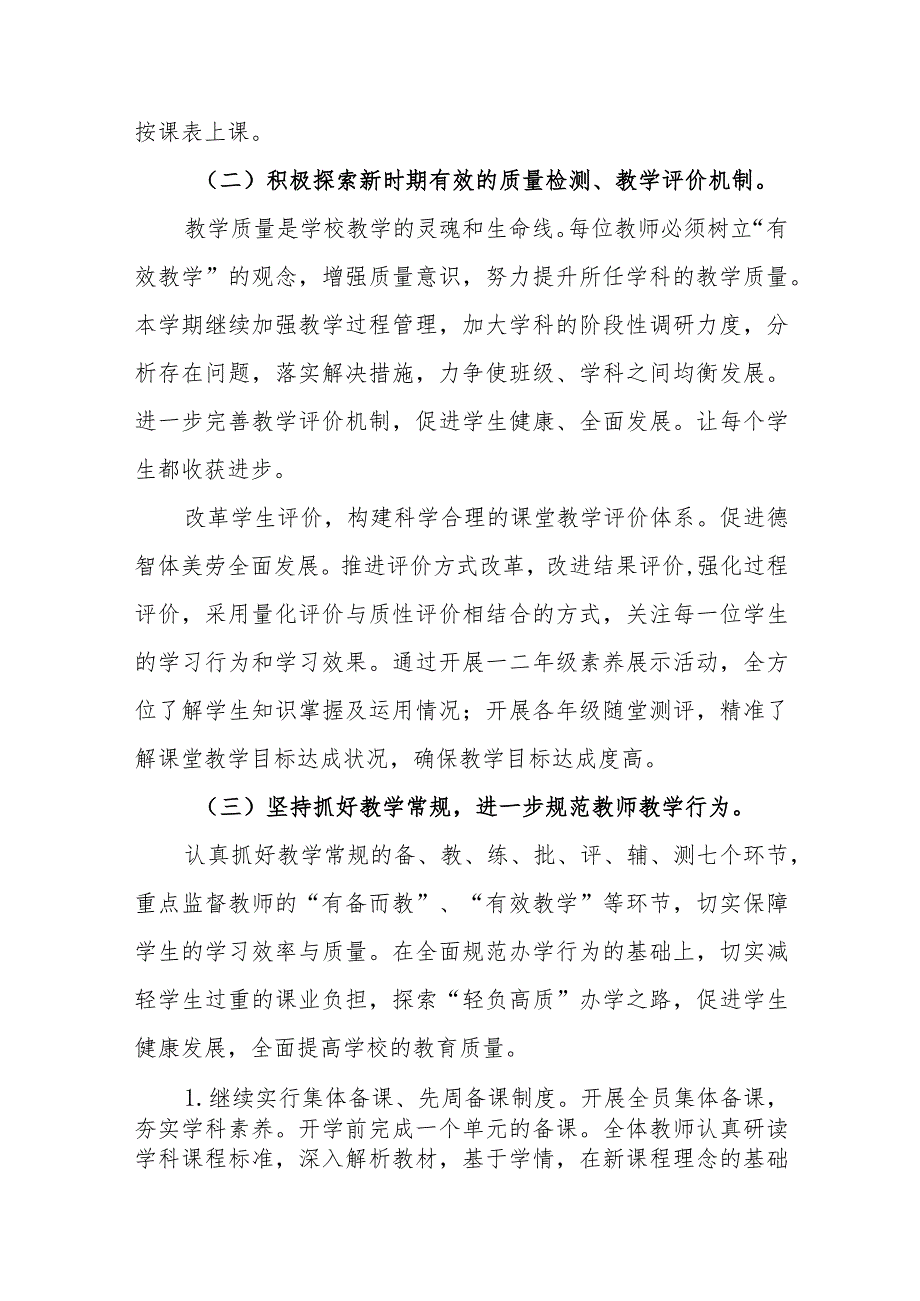 按课表上课。
（二）积极探索新时期有效的质量检测、教学评价机制。
教学质量是学校教学的灵魂和生命线。每位教师必须树立“有
效教学”的观念，增强质量意识，努力提升所任学科的教学质量。
本学期继续加强教学过程管理，加大学科的阶段性调研力度，分
析存在问题，落实解决措施，力争使班级、学科之间均衡发展。
进一步完善教学评价机制，促进学生健康、全面发展。让每个学
生都收获进步。
改革学生评价，构建科学合理的课堂教学评价体系。促进德
智体美劳全面发展。推进评价方式改革，改进结果评价,强化过程
评价，采用量化评价与质性评价相结合的方式，关注每一位学生
的学习行为和学习效果。通过开展一二年级素养展示活动，全方
位了解学生知识掌握及运用情况；开展各年级随堂测评，精准了
解课堂教学目标达成状况，确保教学目标达成度高。
（三）坚持抓好教学常规，进一步规范教师教学行为。
认真抓好教学常规的备、教、练、批、评、辅、测七个环节，
重点监督教师的“有备而教”、“有效教学”等环节，切实保障
学生的学习效率与质量。在全面规范办学行为的基础上，切实减
轻学生过重的课业负担，探索“轻负高质”办学之路，促进学生
健康发展，全面提高学校的教育质量。
1.继续实行集体备课、先周备课制度。开展全员集体备课，
夯实学科素养。开学前完成一个单元的备课。全体教师认真研读
学科课程标准，深入解析教材，基于学情，在新课程理念的基础